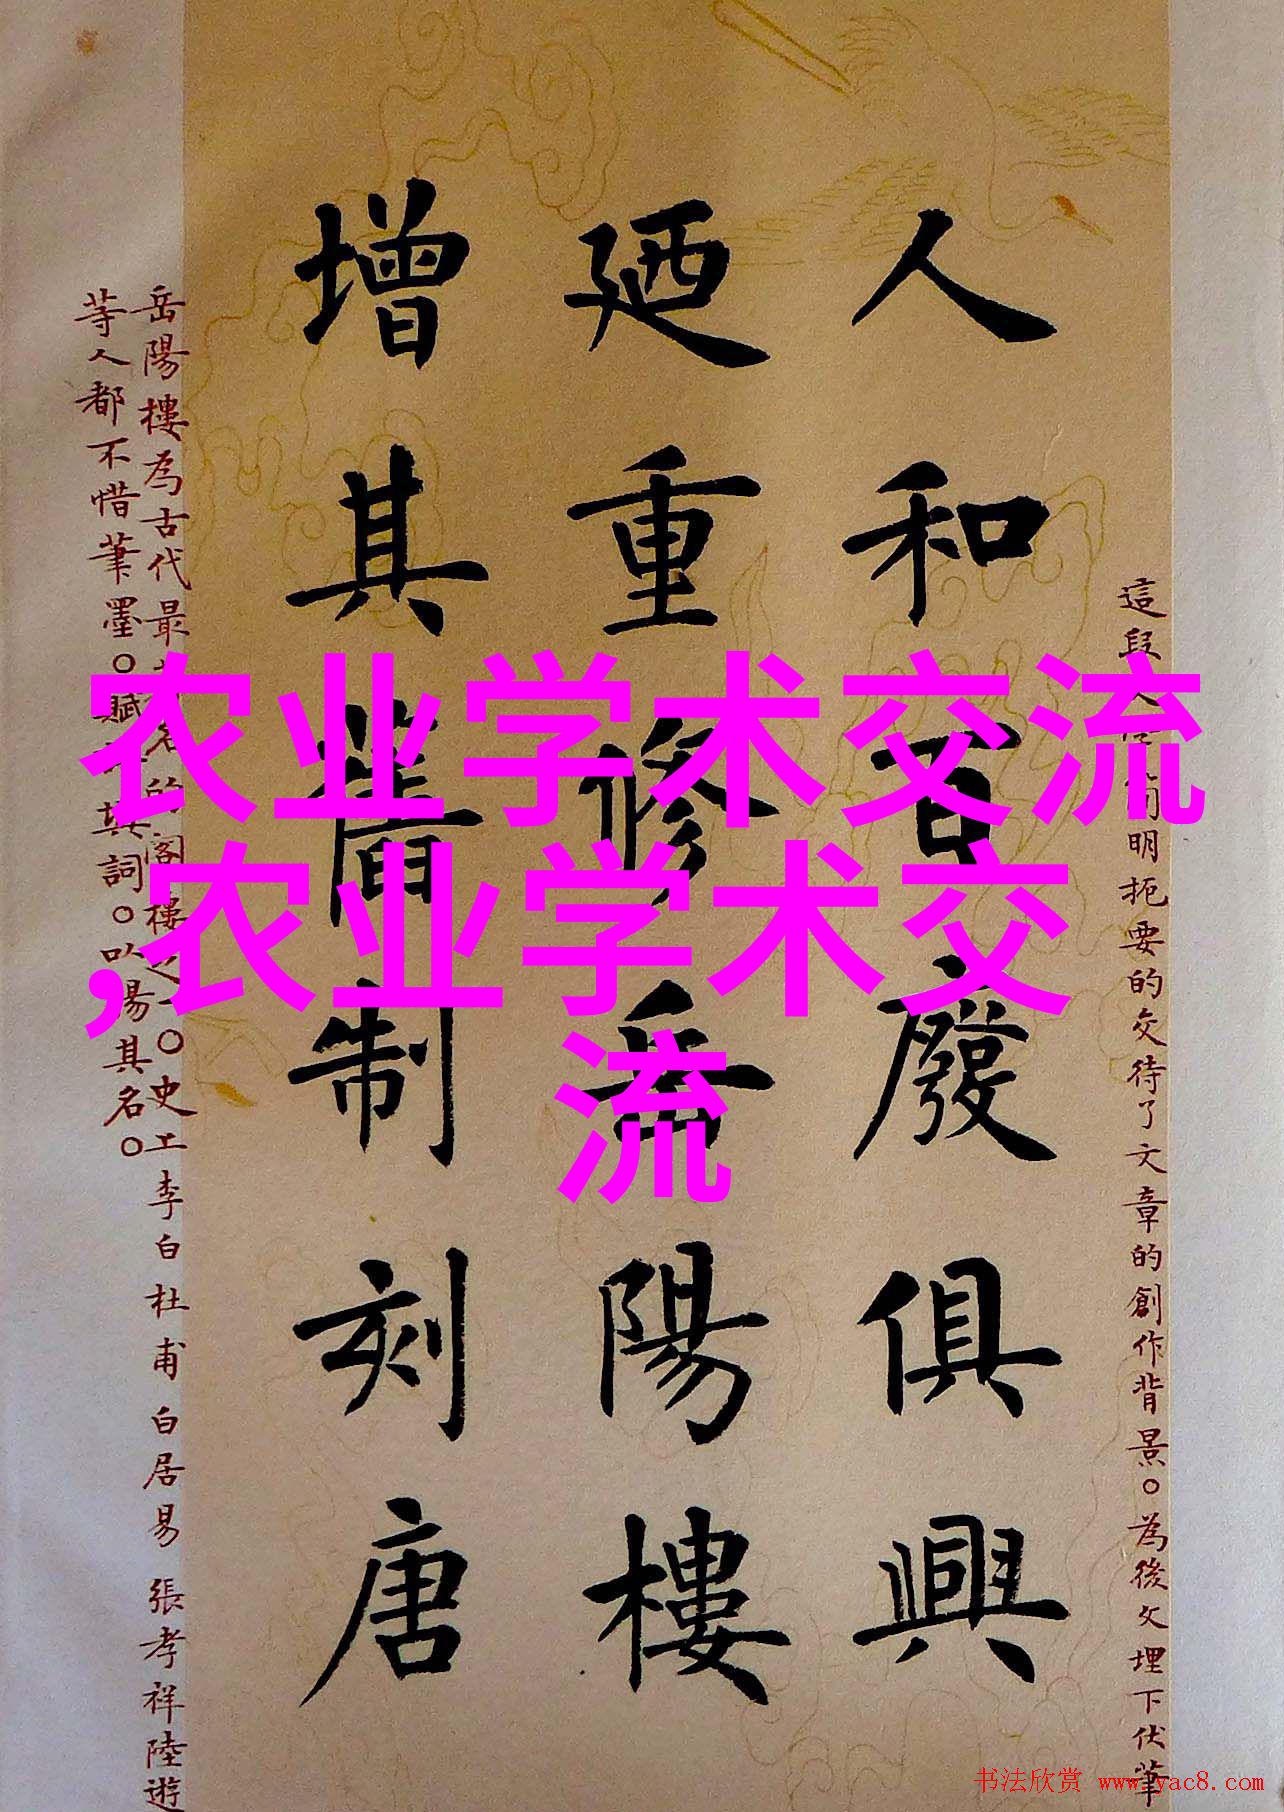 人和百廢俱興
廼重修岳陽樓
增其舊制刻唐
農业学术交流
,农业学术交
流
這段
明扼要的交待了文章的創作背景。為後文埋下伏筆
岳陽樓為古代最
名的阁樓之一。史上李白杜甫 白居易 張孝祥陸遊
等人都不惜筆墨。賦
其詞。以揚其名。
书法欣赏 www.yac8.com